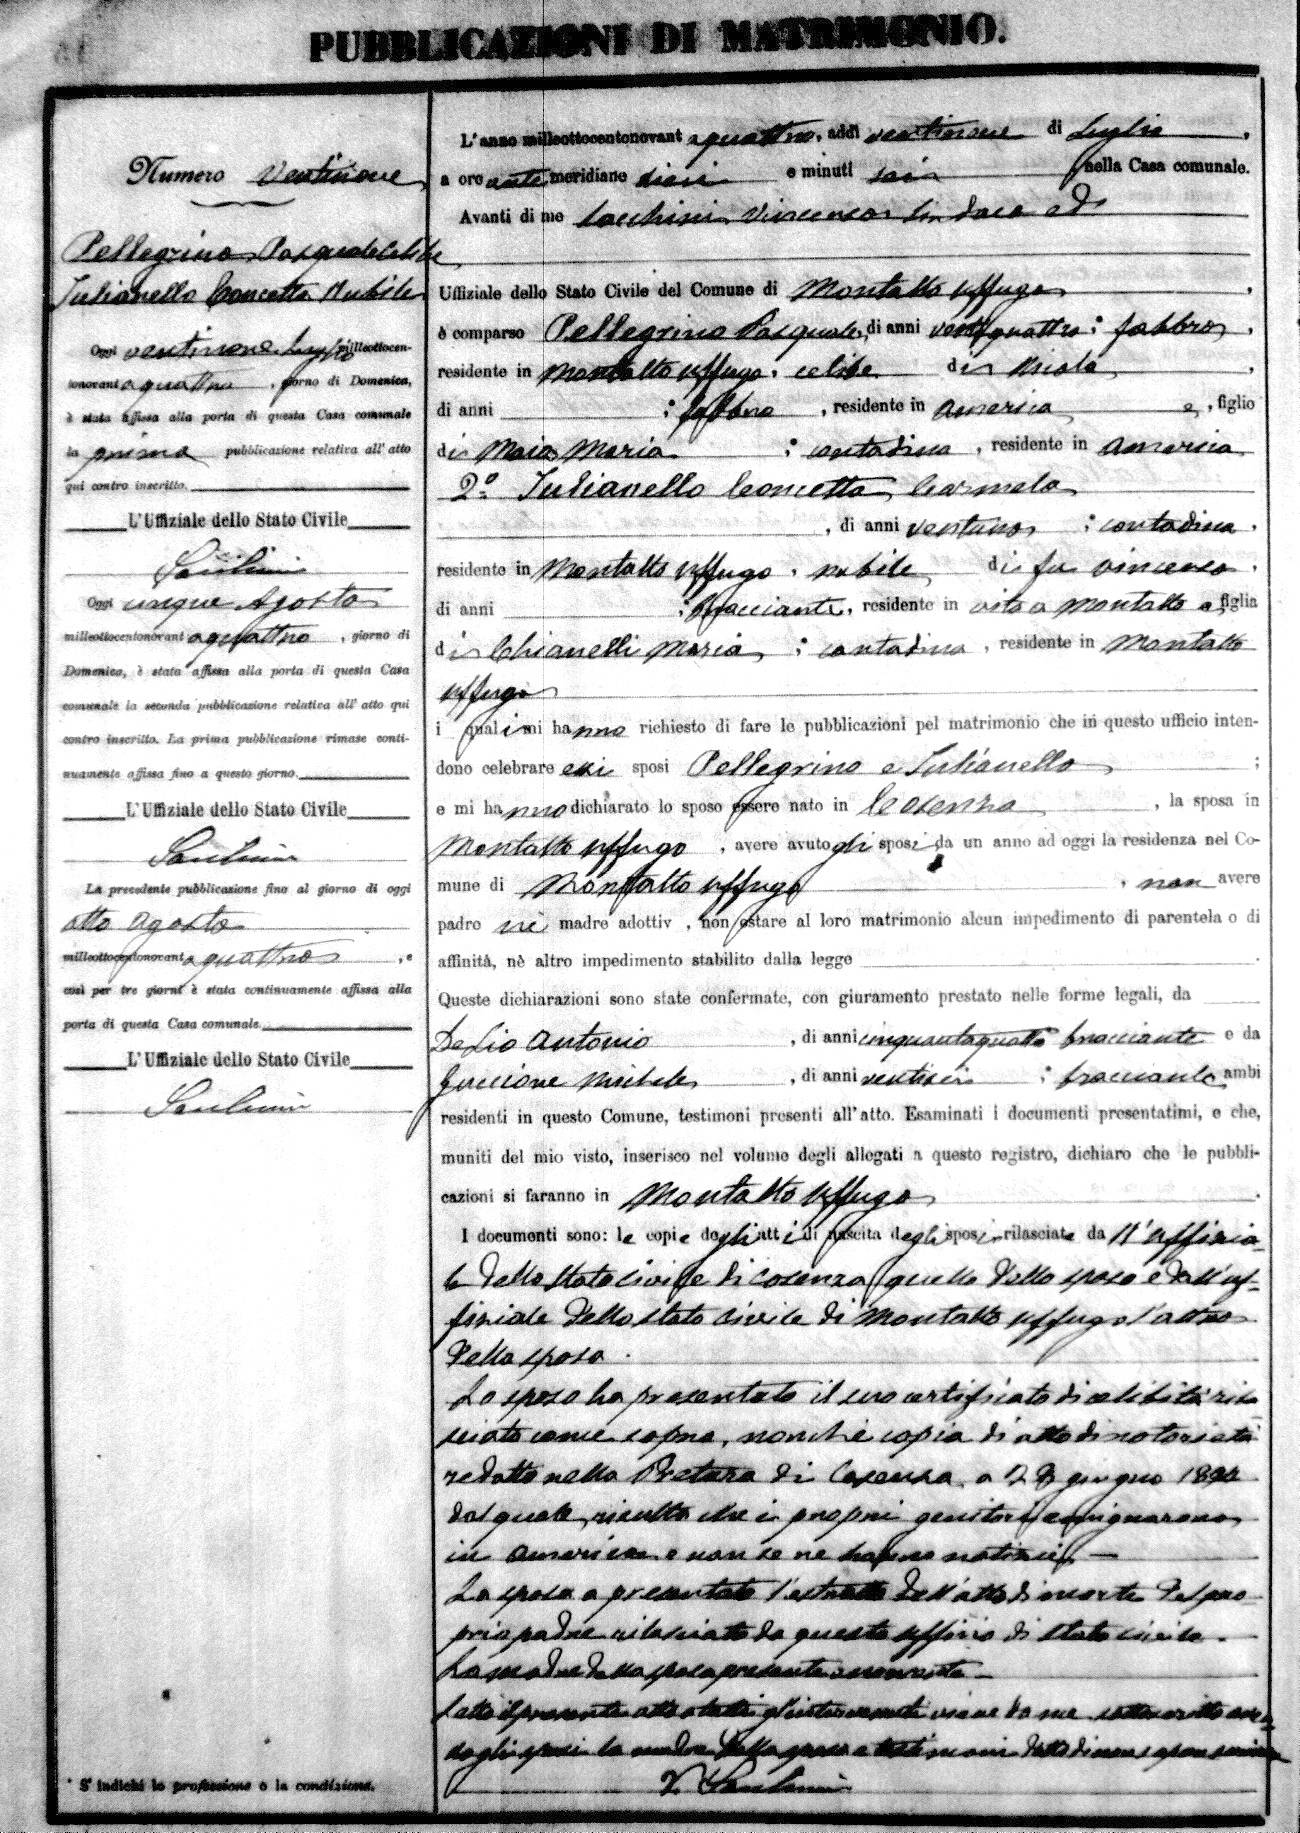 PUBBLICAZIONI DI MATRIMONIO.
Numero Ventinove
Pellegrino Pasquale celibe
Iulianello Concetta Nubile
Oggi ventinove Luglio milleottocen-
tonovantaquattro, giorno di Domenica,
è stata affissa alla porta di questa Casa comunale
la prima pubblicazione relativa all'atto
qui contro inscritto.
L'Uffiziale dello Stato Civile
Oggi cinque Agosto
milleottocentonovantaquattro, giorno di
Domenica, è stata affissa alla porta di questa Casa
comunale la seconda pubblicazione relativa all'atto qui
contro inscritto. La prima pubblicazione rimase conti-
nuamente affissa fino a questo giorno.
L'Uffiziale dello Stato Civile
La precedente pubblicazione fino al giorno di oggi
otto agosto
milleottocentonovantaquattro, e
così per tre giorni è stata continuamente affissa alla
porta di questa Casa comunale.
L'Uffiziale dello Stato Civile
* S'indichi la professione o la condizione.
L'anno milleottocentonovantaquattro, addì ventinove di Luglio,
a ore antemeridiane dieci e minuti sei, nella Casa comunale.
Avanti di me Vincenzo Sindaco ed
Uffiziale dello Stato Civile del Comune di Montalto Uffugo,
è comparso Pellegrino Pasquale, di anni ventiquattro; fabbro,
residente in Montalto Uffugo, celibe di
di anni ; fabbro, residente in America e, figlio
di Maria; contadina, residente in America
2° Iulianello Concetta Carmela
, di anni ventuno; contadina,
residente in Montalto Uffugo, nubile di fu Vincenzo,
di anni ; bracciante, residente in vita a Montalto e, figlia
di Chianelli Maria; contadina, residente in Montalto
Uffugo
i quali mi hanno richiesto di fare le pubblicazioni pel matrimonio che in questo ufficio inten-
dono celebrare essi sposi Pellegrino e Iulianello;
e mi hanno dichiarato lo sposo essere nato in Cosenza, la sposa in
Montalto Uffugo, avere avuto gli sposi da un anno ad oggi la residenza nel Co-
mune di Montalto Uffugo, non avere
padre nè madre adottiv , non ostare al loro matrimonio alcun impedimento di parentela o di
affinità, nè altro impedimento stabilito dalla legge
Queste dichiarazioni sono state confermate, con giuramento prestato nelle forme legali, da
De Lio Antonio, di anni cinquantaquattro bracciante e da
Guccione Michele, di anni ventisei; bracciante, ambi
residenti in questo Comune, testimoni presenti all'atto. Esaminati i documenti presentatimi, e che,
muniti del mio visto, inserisco nel volume degli allegati a questo registro, dichiaro che le pubbli-
cazioni si faranno in Montalto Uffugo.
I documenti sono: le copie degli atti di nascita degli sposi rilasciate dall'Uffizia-
le dello stato civile di Cosenza quella dello sposo e dall'uf-
fiziale dello stato civile di Montalto Uffugo l'altra
della sposa.
Lo sposo ha presentato il suo certificato di celibità rila
sciato come sopra, nonchè copia di atto di notorietà
redatto nella Pretura di Cosenza a giugno
dal quale risulta che i propri genitori emigrarono
in America e non se ne hanno notizie. —
La sposa a presentato l'estratto dell'atto di morte del pro-
prio padre rilasciato da questo uffizio di stato civile.
La madre della sposa presente acconsente. —
Letto il presente atto a tutti gl'intervenuti viene da me sottoscritto
dagli sposi la madre della sposa e testimoni detto di non sapere scrivere